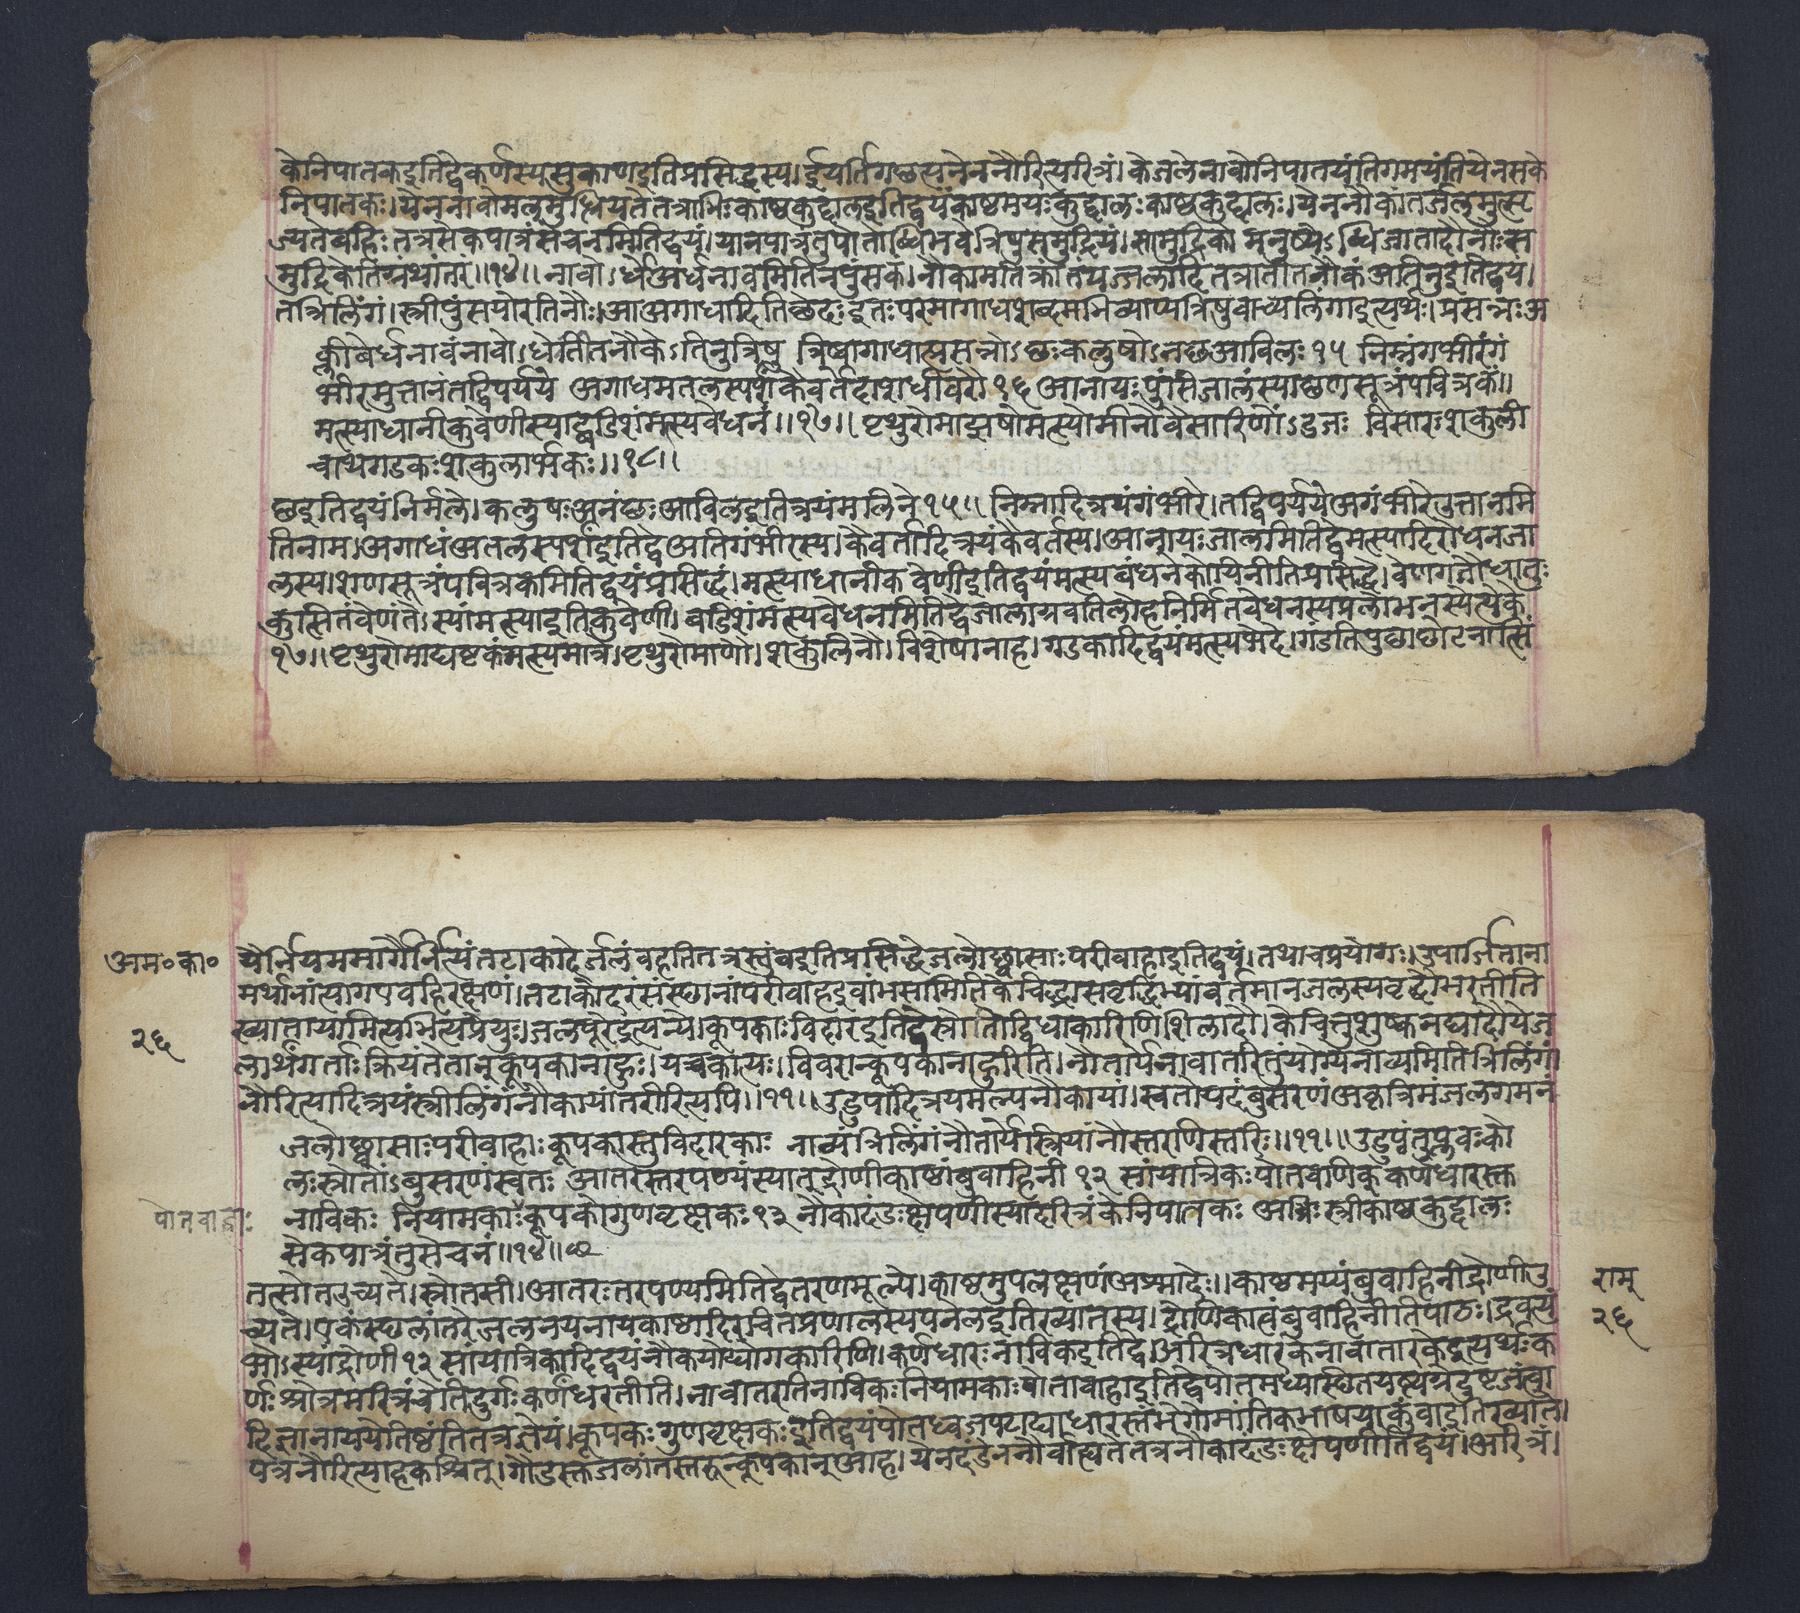 केनिपातकइतिद्वेकर्णस्यसुकाणइतिप्रसिद्धस्य। ईयर्तिगछत्यनेननौरित्यरित्रं। केजलेनावोनिपातयंतिगमयंतियेनसके
निपातकः। येननावोमलमुध्रियतेतत्राभ्रिःकाष्ठकुद्दालइतिद्वयंकाष्ठमयःकुद्दालःकाष्ठकुद्दालः। येननौकांतर्जलमुत्सृ
ज्यतेबहिःतत्रसेकपात्रंसेचनमितिद्वयं। यानपात्रंतुपोतोब्धिभवेत्रिषुसमुद्रियं। सामुद्रिको मनुष्येऽब्धिजातादौनौःस
मुद्रिकेतिग्रंथांतरं॥१४॥ नावोऽर्धेअर्धनावमितिनपुंसकं। नौकामतिक्रांतंयज्जलादि तत्रातीतनौकंअतिनुइतिद्वयं।
तत्रिलिंगं। स्त्रीपुंसयोरतिनौः। आअगाधादितिछेदःइतःपरमागाधशब्दमभिव्याप्यत्रिषुवाच्यलिंगाइत्यर्थः। प्रसन्नःअ
क्लीबेर्धनावंनावोऽर्धेतीतनौकेऽतिनुत्रिषु त्रिष्वागाधात्प्रसन्नोऽछःकलुषोऽनछआविलः १५ निम्नंगभीरंगं
भीरमुत्तानंतद्विपर्यये अगाधमतलस्पर्शेकैवर्तेदाशधीवरौ १६ आनायःपुंसिजालंस्याछणसूत्रंपवित्रकं॥
मत्स्याधानीकुवेणीस्याद्बडिशंमत्स्यवेधनं॥१७॥ पृथुरोमाझषोमत्स्योमीनोवैसारिणोंऽडजः विसारःशकुली
चाथगडकःशकुलार्भकः॥१८॥
छइतिद्वयंनिर्मले। कलुषःअनंछःआविलइतित्रयंमलिने १५॥ निम्नादित्रयंगंभीरे। तद्विपर्ययेअगंभीरेउत्तानमि
तिनाम। अगाधंअतलस्पर्शइतिद्वेअतिगंभीरस्य। कैवर्तादित्रयंकैवर्तस्य। आनायःजालमितिद्वेमत्स्यादिरोधनजा
लस्य। शणसूत्रंपवित्रकमितिद्वयंप्रसिद्धं। मत्स्याधानीकवेणीइतिद्वयंमत्स्यबंधनेकोयिनीतिप्रसिद्धे। वेणगतौधातुः
कुत्सितंवेणंते ऽस्यांमत्स्याइतिकुवेणी। बडिशंमत्स्यवेधनमितिद्वेजालाग्रवर्तिलोहनिर्मितवेधनस्यप्रलोभनस्येत्येके
१७॥ पृथुरोमाद्यष्टकंमत्स्यमात्रे। पृथुरोमाणौ। शकुलिनौ। विशेषानाह। गडकादिद्वयंमत्स्यभेदे। गंडतिपुछाघोटनात्सिं
अम॰ का॰
२६
यैर्निगममार्गैर्नित्यंतटाकादेर्जलंवहतितत्रस्त्वंबइतिप्रसिद्धेजलोछ्वासाःपरीवाहाइतिद्वयं। तथाचप्रयोगः। उपार्जिताना
मर्थानांत्यागएवहिरक्षणं। तटाकोदरसंस्थानांपरीवाहइवांभसामितिकेचिद्भासवृद्धिभ्यांवर्तमानजलस्यवृद्धौभरतीति
ख्यातायामित्यभित्यप्रैयुः। जलपूरेइत्यन्ये। कूपकाःविदारइतिद्वेस्त्रोतोद्विधाकारिणिशिलादौ। केचित्तुशुष्कनद्यादौयेज
लार्थंगर्ताःक्रियंतेतानकूपकानाहुः। यच्चकात्यः। विवरान्कूपकानाहुरिति। नौतार्यंनावातरितुंयोग्येनाव्यमितित्रिलिंगं
नौरित्यादित्रयंस्त्रीलिंगंनौकायांतरीरित्यपि॥११॥ उडुपादित्रयमल्पनौकायां। स्वतोयदंबुसरणंअकृत्रिमंजलगमनं
जलोछ्वासाःपरीवाहाःकूपकास्तुविदारकाः नाव्यंत्रिलिंगंनौतार्येस्त्रियांनौस्तरणिस्तरिः॥११॥ उडुपंतुप्लवःको
लःस्त्रोतोंऽबुसरणंस्वतः आतरस्तरपण्यंस्यात्द्रोणीकाष्ठांबुवाहिनी १२ सांयात्रिकःपोतवणिक्कर्णधारस्तु
पोतवाहाः
नाविकः नियामकाःकूपकोगुणवृक्षकः १३ नौकादंडःक्षेपणीस्यादरित्रंकेनिपातकः अभ्रिःस्त्रीकाष्ठकुद्दालः
सेकपात्रंतुसेचनं॥१४॥
तत्स्रोतउच्यते। स्रोतसी। आतरःतरपण्यमितिद्वेतरणमूल्ये। काष्ठमुपलक्षणंअश्मादेः॥ काष्ठमय्यंबुवाहिनीद्रोणीउ
च्यते। एकंस्थलांतरेजलनयनायकाष्ठादिरचितप्रणालस्यपनलइतिख्यातस्य। द्रोणिकात्वंबुवाहिनीतिपाठः। द्रवत्यं
भोऽस्यांद्रोणी १२ सांयात्रिकादिद्वयंनौकयोद्योगकारिणि। कर्णधारःनाविकइतिद्वे। अरित्रधारकेनावांतारकेइत्यर्थःक
र्णःश्रोत्रमरित्रंचेतिदुर्गःकर्णंधरतीति। नावातरतिनाविकःनियामकाःपोतावाहाइतिद्वेपोतमध्यस्थितयष्ट्यग्रेदुष्टजंत्वा
दिज्ञानाययेतिष्ठंतितत्रज्ञेयं। कूपकःगुणवृक्षकःइतिद्वयंपोतध्वजपटाद्याधारस्तंभेगोमांतिकभाषयाकुंवाइतिख्याते।
पत्रंनौरित्याहकश्चित्। गौडस्तुजलांतस्तरून्कूपकान्आह। येनदंडेननौर्वाह्यतेतत्रनौकादंडःक्षेपणीतिद्वयं। अरित्रं।
रामु
२६